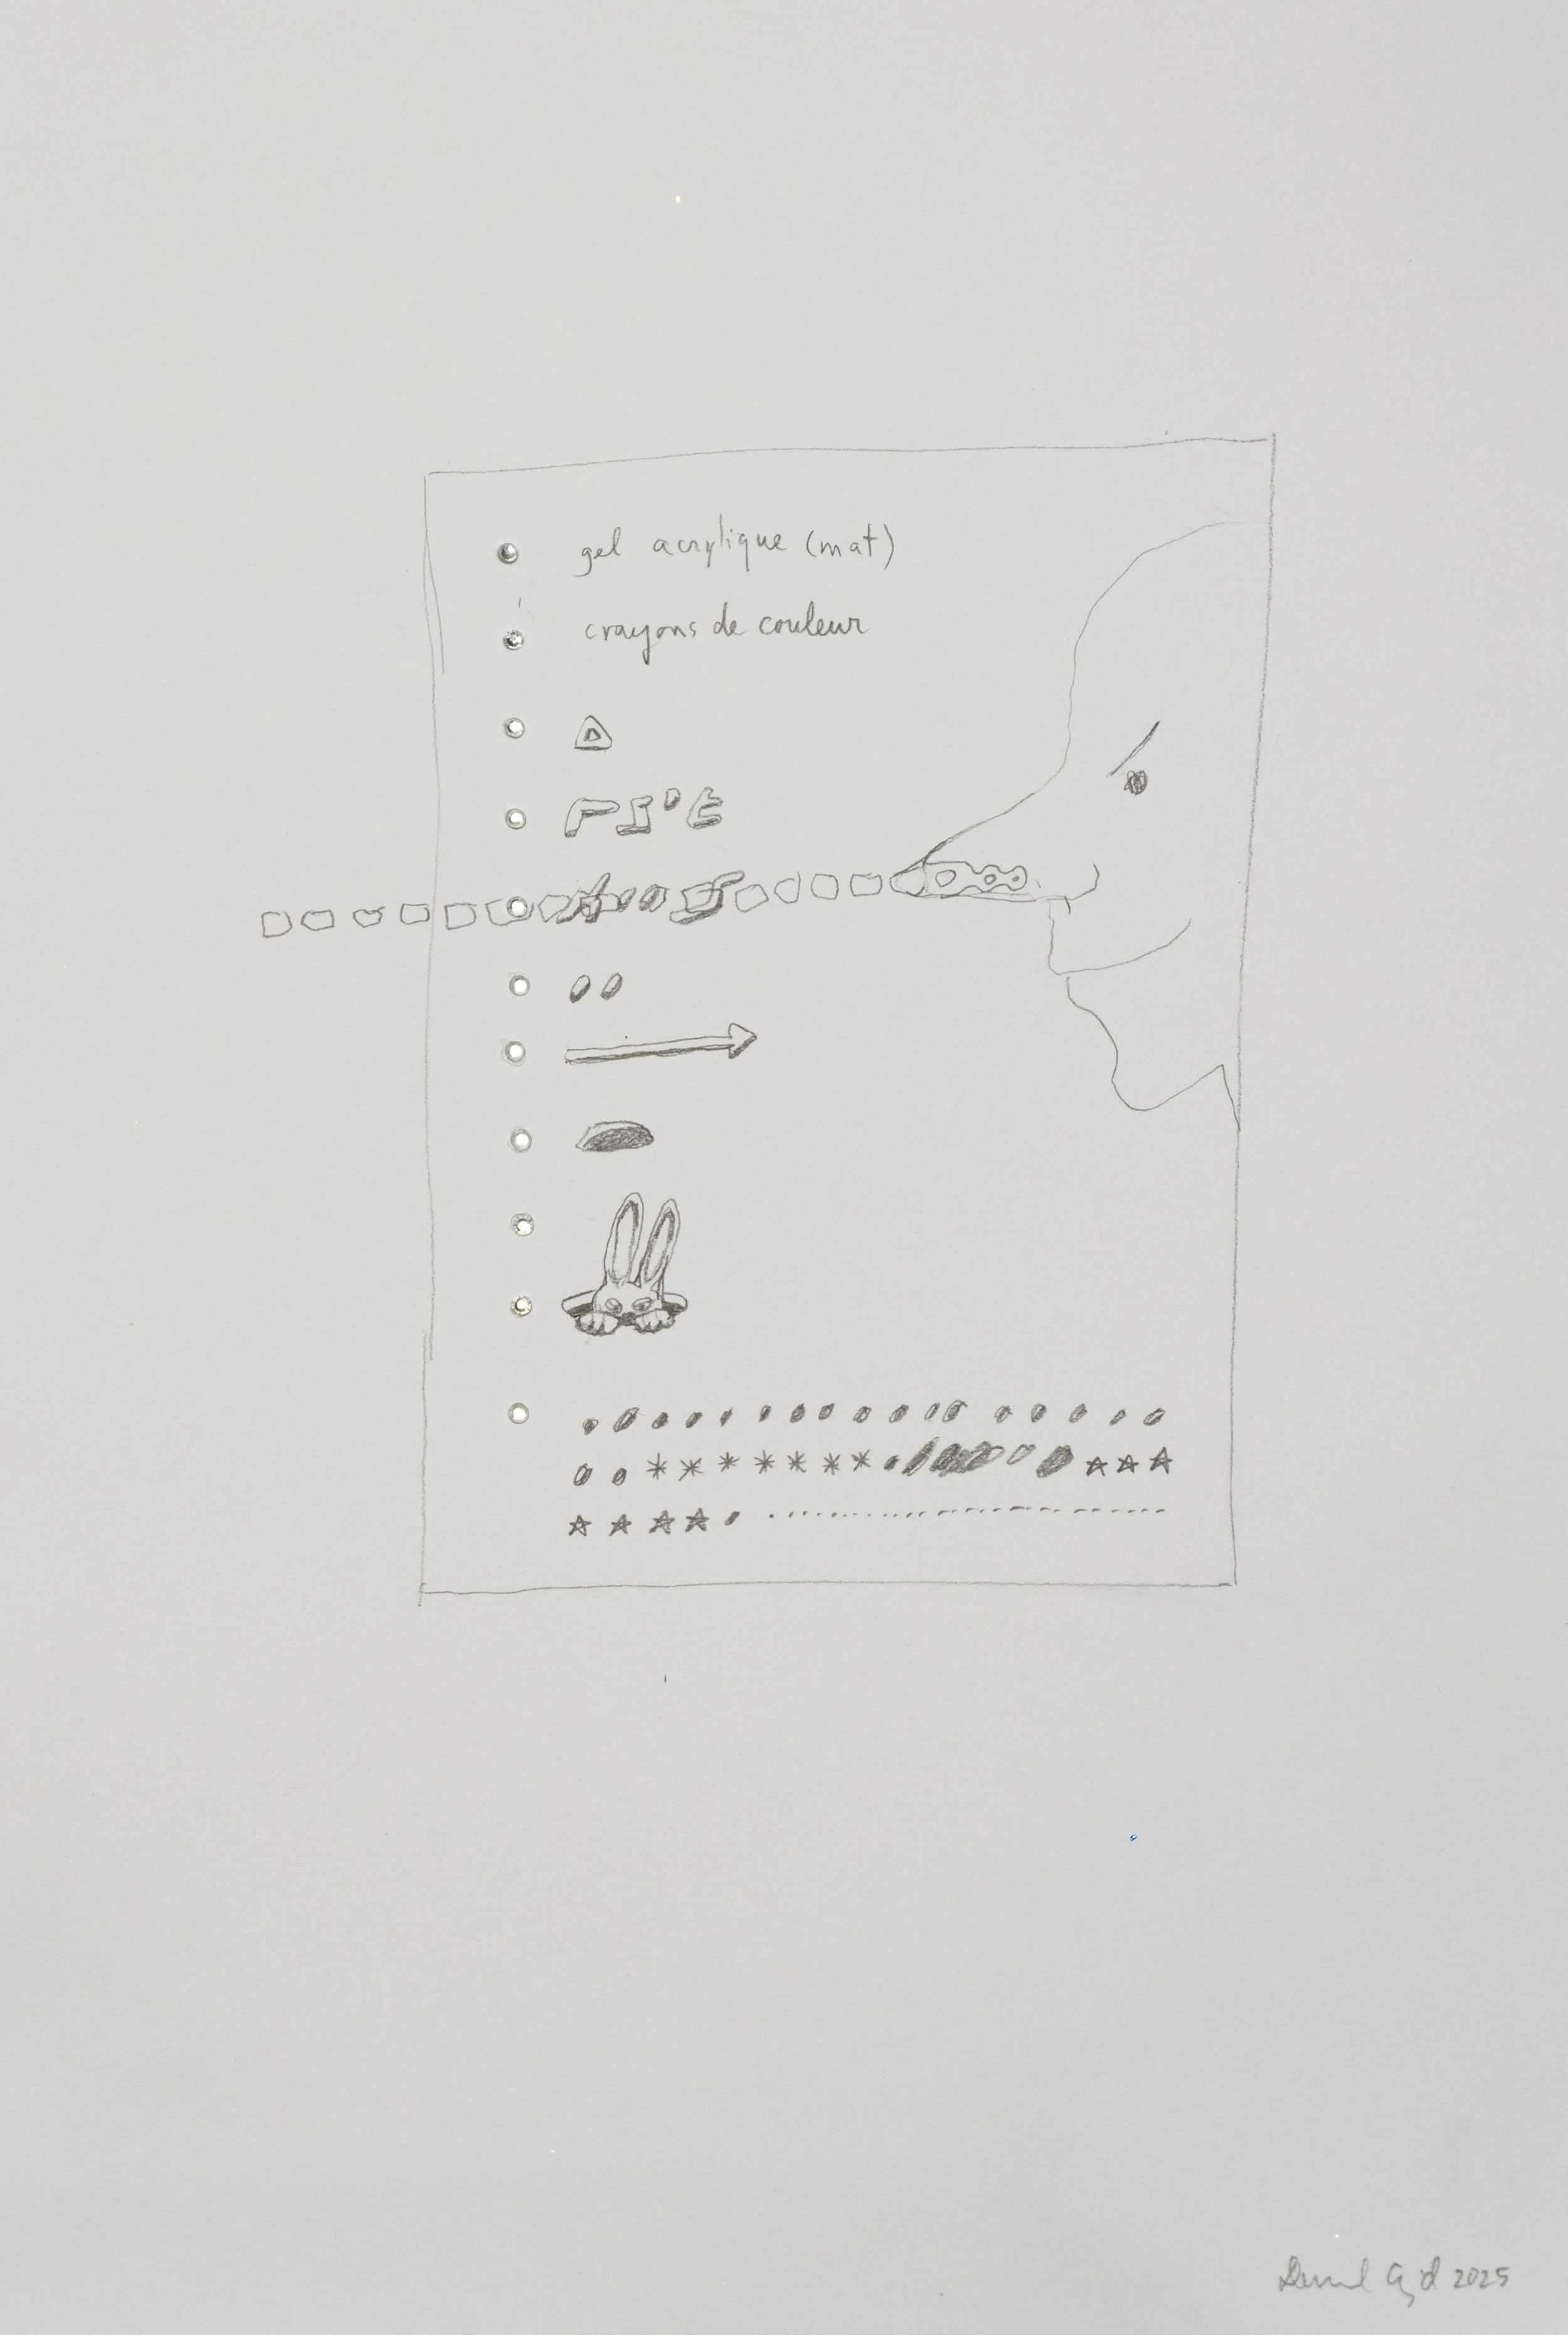 gel acrylique (mat)
crayons de couleur
2025